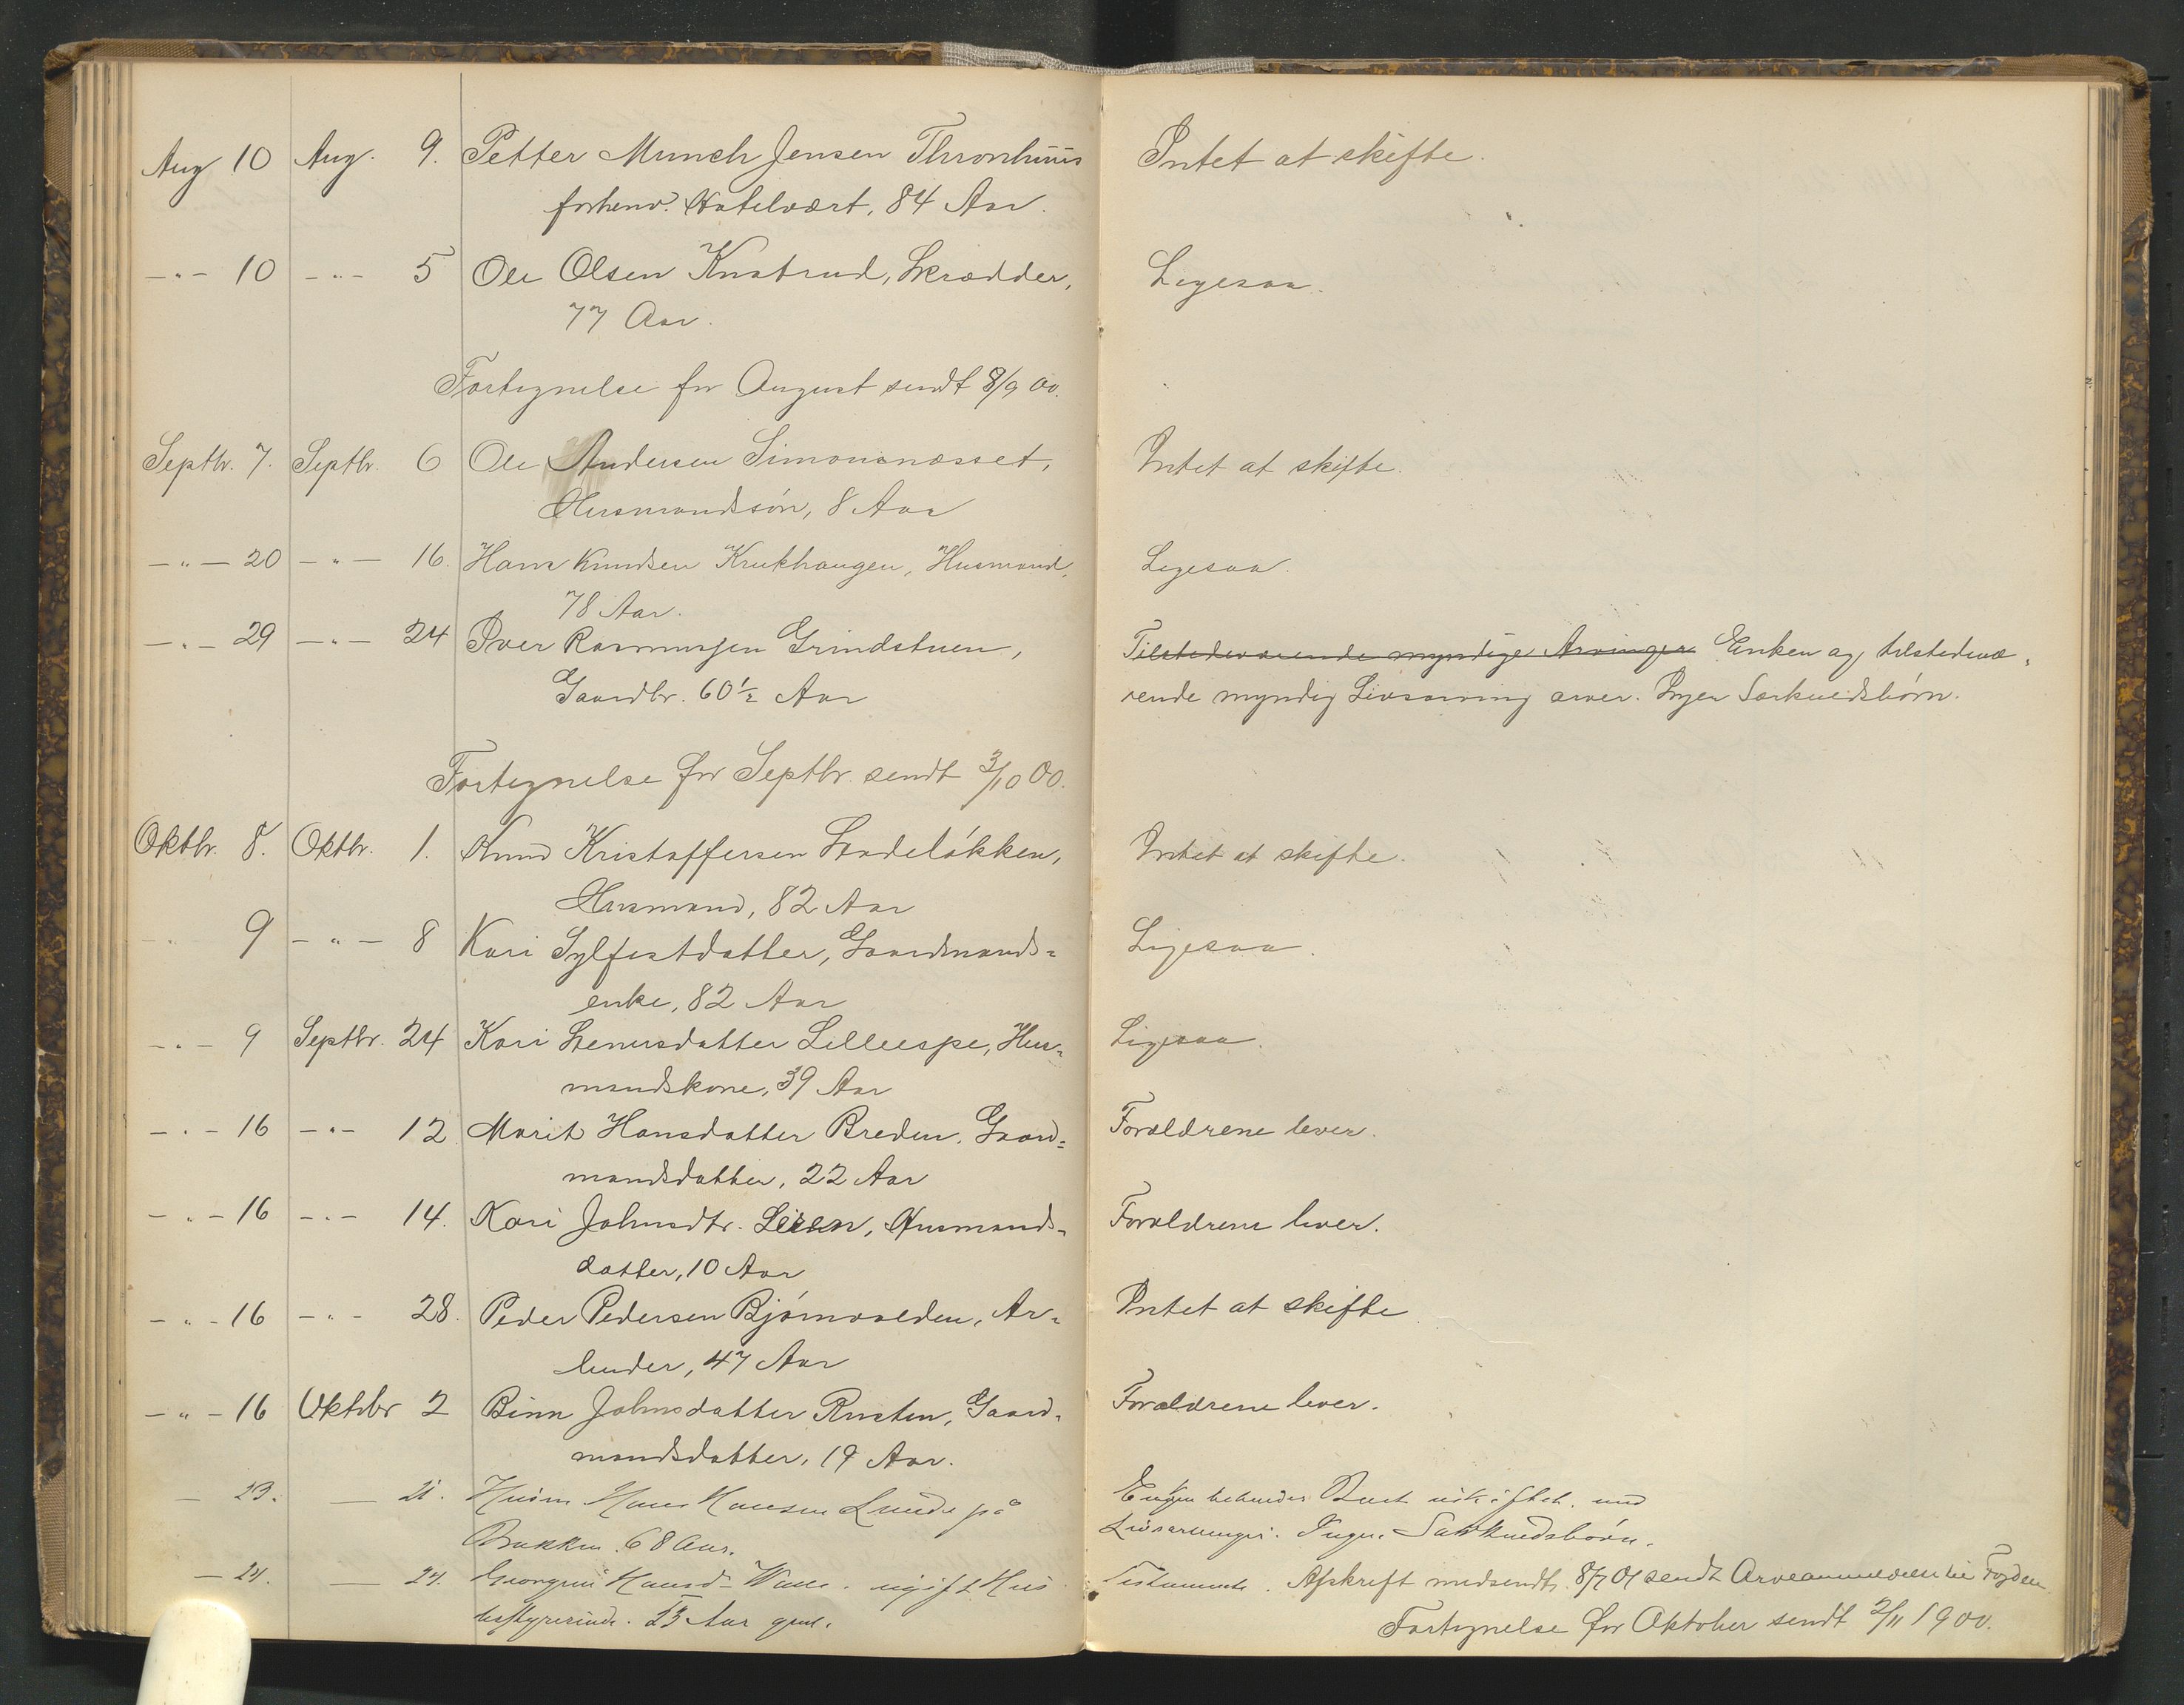 Aug 10 Aug. 9. Petter Munch Jensen Thronhuus Intet at skifte.
forhenv. Hotelvært, 84 Aar.
-"- 10 -"- 5 Ole Olsen Knatrud, Skrædder, Ligesaa.
77 Aar.
Fortegnelse for August sendt 8/9 00.
Septbr. 7. Septbr. 6 Ole Andersen Simonsnæsset, Intet at skifte.
Husmandssøn, 8 Aar
-"- 20 -"- 16. Hans Knudsen Krukhaugen, Husmand, Ligesaa.
78 Aar.
-"- 29 -"- 24 Iver Rasmussen Grindstuen, Tilstedeværende myndige Arvinger Enken og tilstedevæ-
Gaardbr. 60½ Aar rende myndig Livsarving arver. Ingen Særkuldsbørn.
Fortegnelse for Septbr. sendt 3/10 00.
Oktbr. 8. Oktbr. 1. Knud Kristoffersen Ladeløkken, Intet at skifte.
Husmand, 82 Aar
-"- 9 -"- 8 Kari Sylfestdatter, Gaardmands- Ligesaa.
enke, 82 Aar
-"- 9 Septbr. 24 Kari Stenersdatter Lilleespe, Hus- Ligesaa.
mandskone, 39 Aar
-"- 16 -"- 12 Marit Hansdatter Breden, Gaard- Forældrene lever.
mandsdatter, 22 Aar
-"- 16 -"- 14. Kari Johnsdtr. Leien, Husmands- Forældrene lever.
datter, 10 Aar
-"- 16 -"- 28. Peder Pedersen Bjørnvolden, Ar- Intet at skifte.
beider, 47 Aar
-"- 16 Oktbr 2 Johnsdatter Rusten, Gaard- Forældrene lever.
mandsdatter, 19 Aar.
- 23. - 21. Husm Hans Hansen Lunde på Enken behandler Boet uskiftet med
Bakken. 68 Aar. Livsarvinger. Ingen Særkuldsbørn.
- 24. - 24. Hansd. ugift Hus Testamente. Afskrift medsendt. 8/7 01 sendt Arveanmeldelse til Fogden.
bestyrerinde. Aar gml. Fortegnelse for Oktober sendt 2/11 1900.